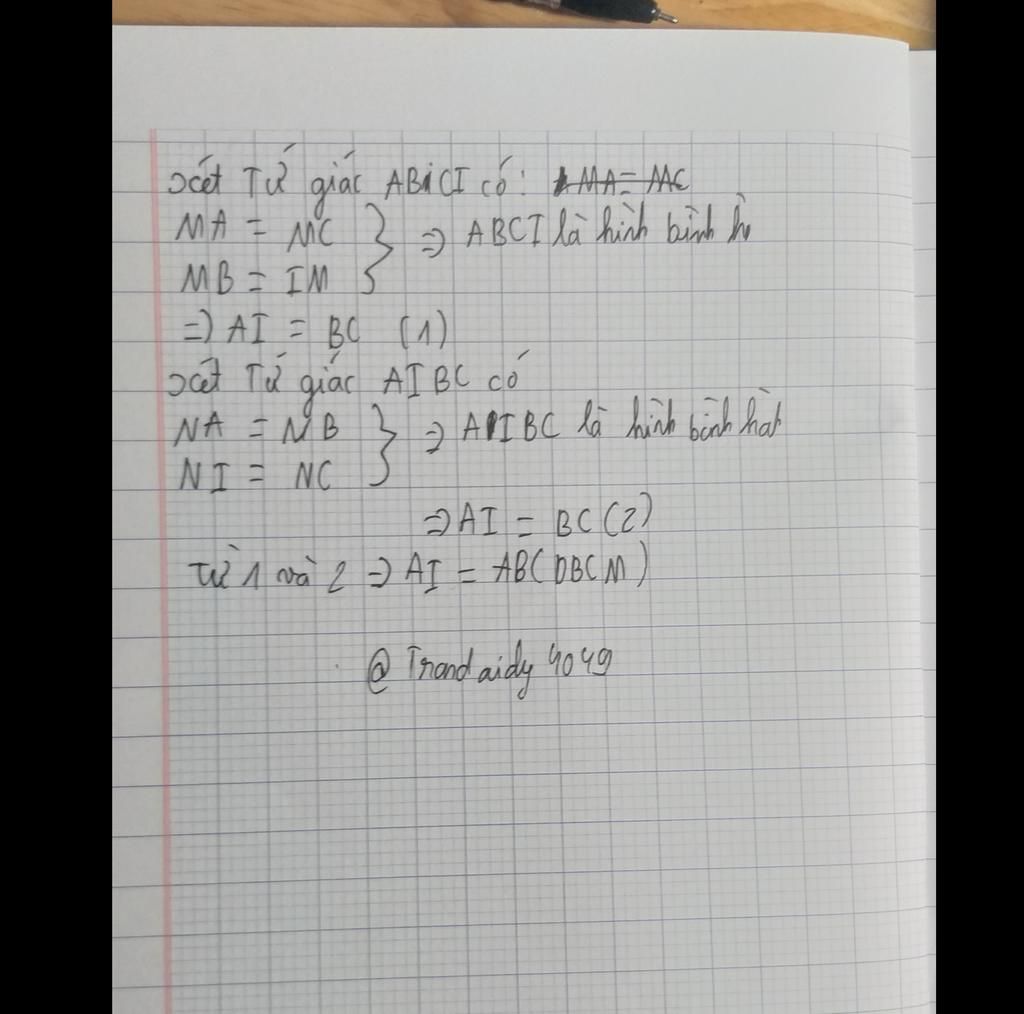 xét Tứ giác ABCI có: MA = MC
MA = MC
MB = IM } => ABCI là hình bình h
=> AI = BC (1)
xét Tứ giác AIBC có
NA = NB
NI = NC } => AIBC là hình bình hàh
=> AI = BC (2)
Từ 1 và 2 => AI = ABC DBCM)
@Trandaidy4049